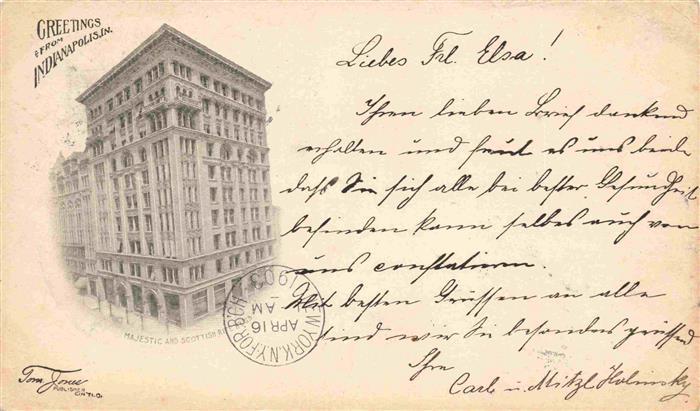 GREETINGS
FROM
INDIANAPOLIS, IN.
Liebes Frl. Elsa!
Ihren lieben Brief dankend
erhalten und freut es uns beide
dass Sie sich alle bei bester Gesundheit
befinden kann selbes auch von
uns constatieren.
Mit besten Grüssen an alle
sind wir Sie besonders grüssend
Ihre
Carl u. Mitzl
MAJESTIC AND SCOTTISH
NEW YORK, N.Y. FOR. B'CH.
APR 16
AM
1903
Tom Jones
PUBLISHER
CIN'TI. O.